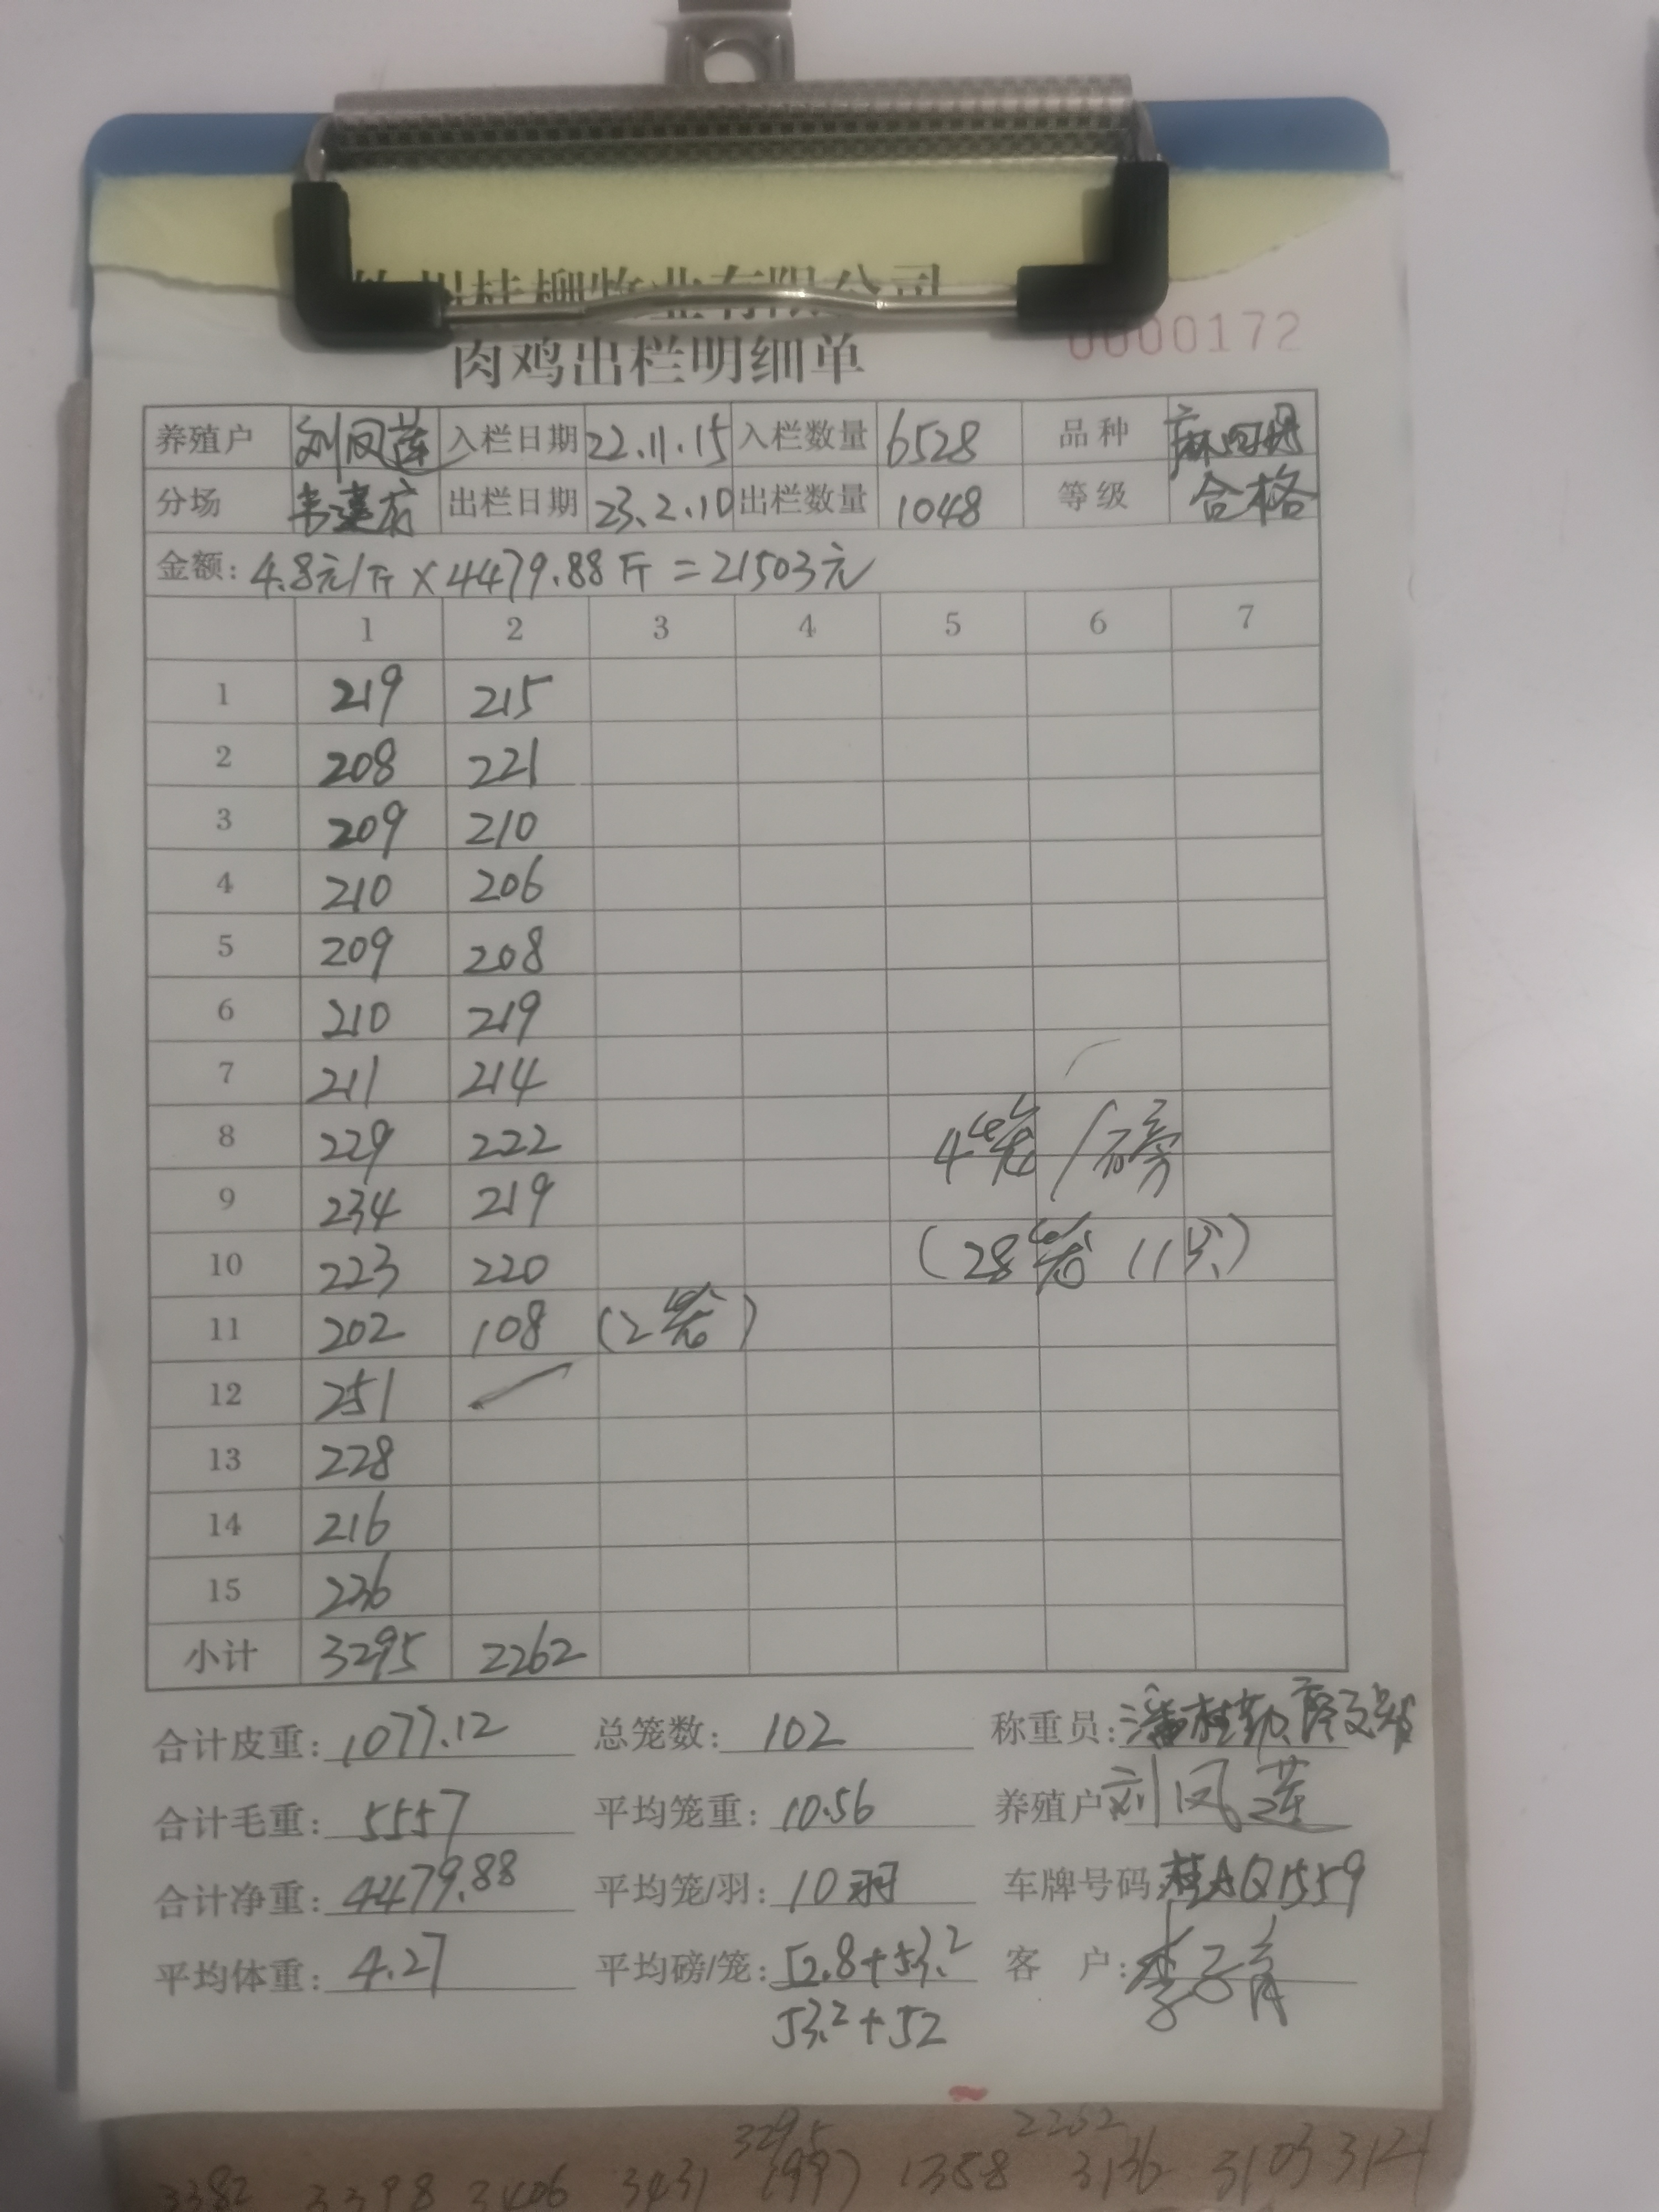 桂柳牧业有限公司
肉鸡出栏明细单
0000172
养殖户 刘凤莲 入栏日期 22.11.15 入栏数量 6528 品种
分场 出栏日期 23.2.10 出栏数量 1048 等级 合格
金额: 4.8元/斤×4479.88斤=21503元
1 2 3 4 5 6 7
1 219 215
2 208 221
3 209 210
4 210 206
5 209 208
6 210 219
7 211 214
8 229 222 4笼/磅
9 234 219
10 223 220 (28笼11只)
11 202 108 (2笼)
12 251
13 228
14 216
15 236
小计 3295 2262
合计皮重: 1077.12 总笼数: 102 称重员:
合计毛重: 5557 平均笼重: 10.56 养殖户 刘凤莲
合计净重: 4479.88 平均笼/羽: 10羽 车牌号码 桂AQ1559
平均体重: 4.27 平均磅/笼: 52.8+53.2 客 户:
53.2+52
3295 2262
3382 3398 3406 3431 1358 3136 3103 3121